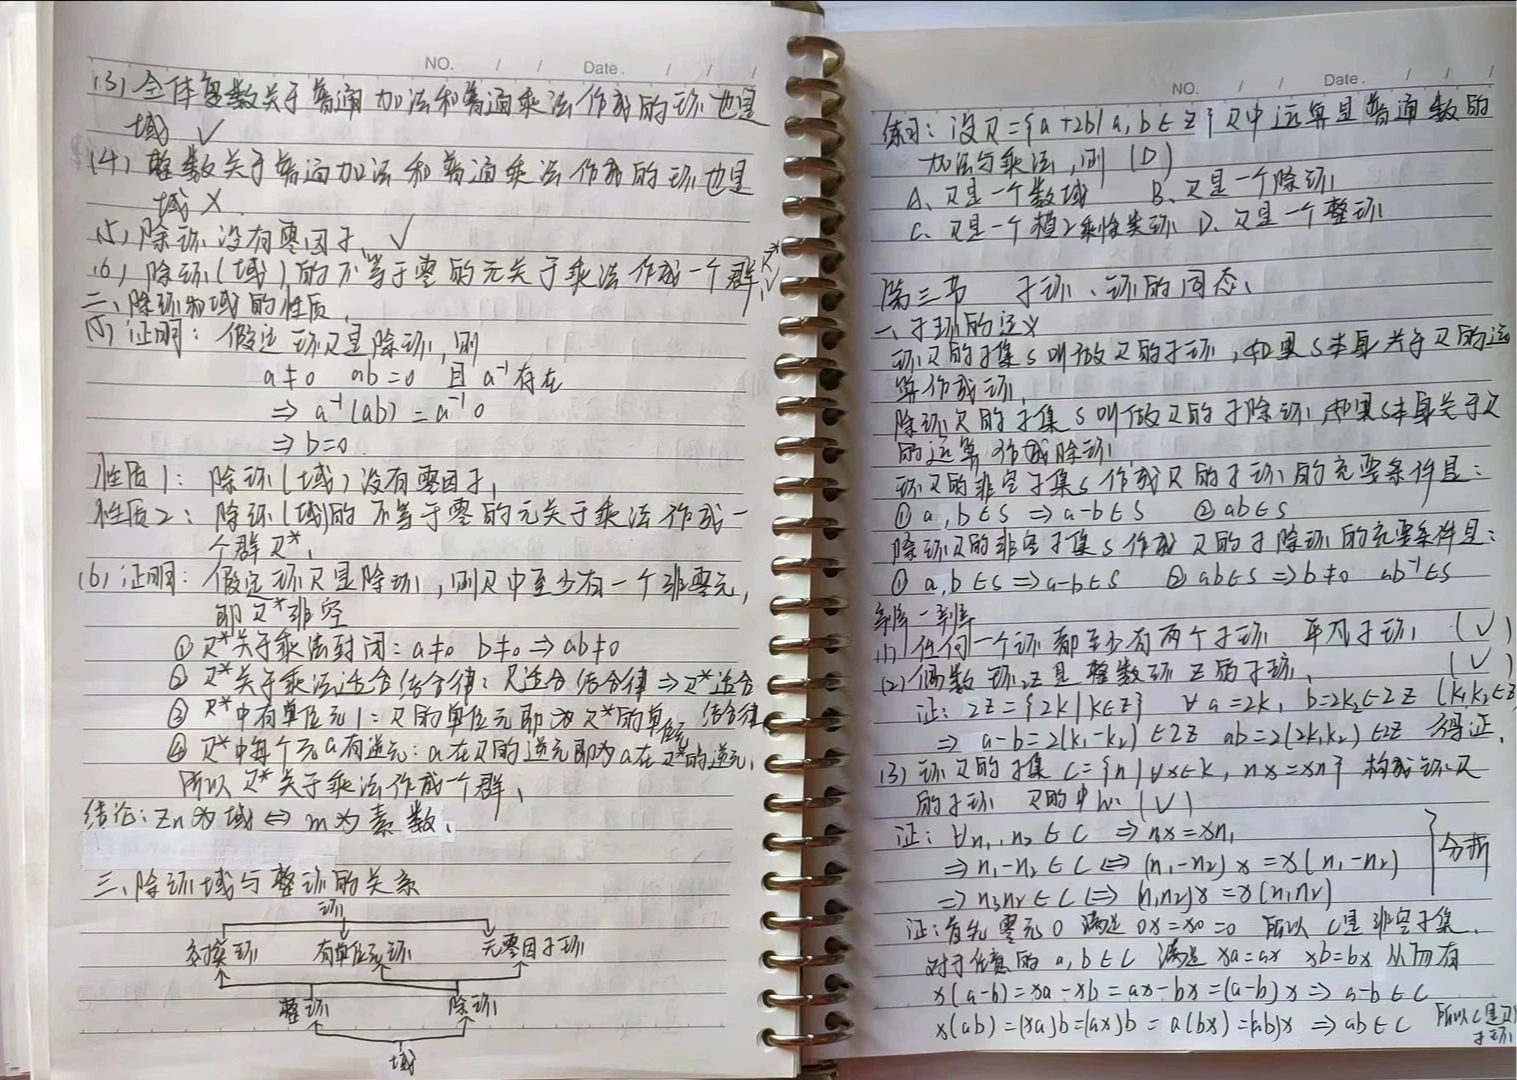 NO. / / Date. / / /
(3) 全体复数关于普通加法和普通乘法作成的环也是
域 ✓
(4) 整数关于普通加法和普通乘法作成的环也是
域 ×.
(5) 除环没有零因子. ✓
(6) 除环(域)的不等于零的元关于乘法作成一个群R*. ✓
二、除环和域的性质.
(5) 证明: 假定环R是除环, 则
a≠0 ab=0 且 a⁻¹存在
⇒ a⁻¹(ab) = a⁻¹0
⇒ b=0.
性质1: 除环(域)没有零因子.
性质2: 除环(域)的不等于零的元关于乘法作成一
个群R*.
(6) 证明: 假定环R是除环, 则R中至少有一个非零元,
即R*非空
① R*关于乘法封闭: a≠0 b≠0 ⇒ ab≠0
② R*关于乘法适合结合律: R适合结合律 ⇒ R*适合
结合律
③ R*中有单位元1: R的单位元即为R*的单位元
④ R*中每个元a有逆元: a在R的逆元即为a在R*的逆元.
所以R*关于乘法作成一个群.
结论: Zn为域 ⇔ m为素数.
三、除环域与整环的关系
环
交换环 有单位元环 无零因子环
整环 除环
域
NO. / / Date. / / /
练习: 设R={a+2b|a,b∈Z} R中运算是普通数的
加法与乘法, 则 (D)
A、R是一个数域 B、R是一个除环
C、R是一个模2剩余类环 D、R是一个整环
第三节 子环、环的同态.
一、子环的定义
环R的子集S叫做R的子环, 如果S本身关于R的运
算作成环.
除环R的子集S叫做R的子除环, 如果S本身关于R
的运算作成除环.
环R的非空子集S作成R的子环的充要条件是:
① a,b∈S ⇒ a-b∈S ② ab∈S
除环R的非空子集S作成R的子除环的充要条件是:
① a,b∈S ⇒ a-b∈S ② ab∈S ⇒ b≠0 ab⁻¹∈S
(1) 任何一个环都至少有两个子环 平凡子环 (✓)
(2) 偶数环2Z是整数环Z的子环. (✓)
证: 2Z={2k|k∈Z} ∀a=2k, b=2k₂∈2Z (k₁k₂∈Z
⇒ a-b=2(k₁-k₂)∈2Z ab=2(2k₁k₂)∈2Z 得证.
(3) 环R的子集C={n|∀x∈k, nx=xn} 构成环R
的子环 R的中心. (✓)
证: ∀n₁,n₂∈C ⇒ nx=xn,
⇒ n₁-n₂∈C ⇔ (n₁-n₂)x=x(n₁-n₂)
⇒ n₁n₂∈C ⇔ (n₁n₂)x=x(n₁n₂)
分析
证: 首先零元0满足 0x=x0=0 所以C是非空子集.
对于任意的a,b∈C 满足 xa=ax xb=bx 从而有
x(a-b)=xa-xb=ax-bx=(a-b)x ⇒ a-b∈C
x(ab)=(xa)b=(ax)b=a(bx)=(ab)x ⇒ ab∈C 所以C是R的
子环.